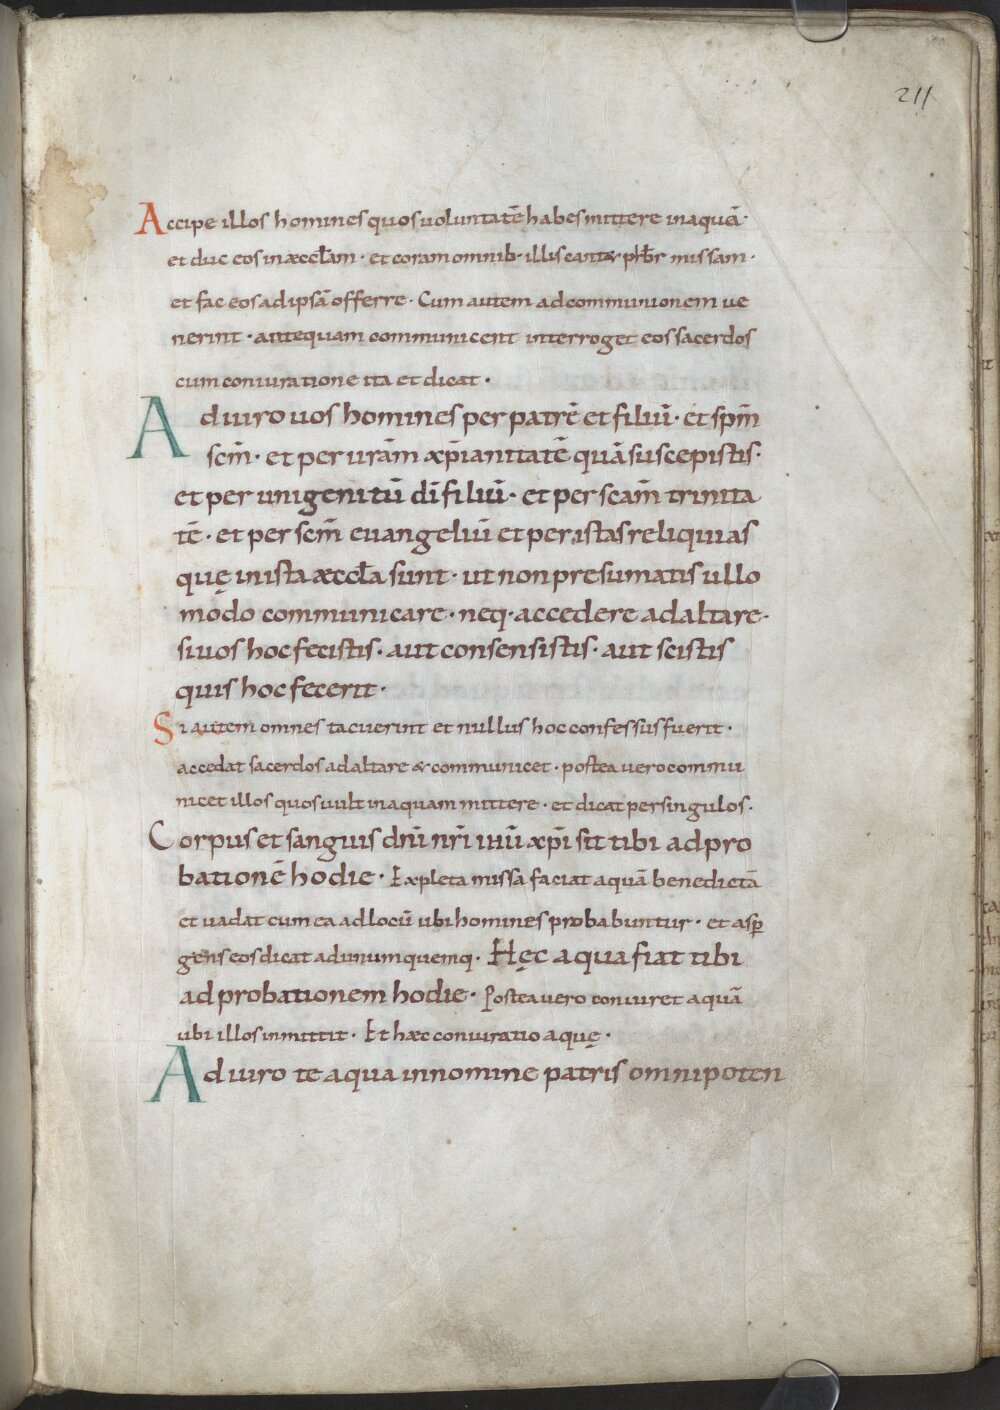 211
Accipe illos homines quos uoluntatē habes mittere in aquā·
et duc eos in æccl̄am· et coram omnib· illis cantæ pr̄br missam·
et fac eos ad ipsā offerre· Cum autem ad communionem ue
nerint· antequam communicent interroget eos sacerdos
cum coniuratione ita et dicat·
Adiuro uos homines per patrē et filiū· et sp̄m
sc̄m· et per urām xp̄ianitatē quā suscepistis·
et per unigenitū dī filiū· et per scām trinita
tē· et per sc̄m euangeliū et per istas reliquias
quę in ista æccl̄a sunt· ut non presumatis ullo
modo communicare· neq· accedere ad altare·
si uos hoc fecistis· aut consensistis· aut scistis
quis hoc fecerit·
Si autem omnes tacuerint et nullus hoc confessus fuerit·
accedat sacerdos ad altare & communicet· postea uero commu
nicet illos quos uult in aquam mittere· et dicat per singulos·
Corpus et sanguis dn̄i nr̄i ihū xp̄i sit tibi ad pro
bationē hodie· Expleta missa faciat aquā benedictā
et uadat cum ea ad locū ubi homines probabuntur· et asp̱
gens eos dicat ad unumquemq· Hęc aqua fiat tibi
ad probationem hodie· Postea uero coniuret aquā
ubi illos inmittit· Et hæc coniuratio aquę·
Adiuro te aqua in nomine patris omnipoten